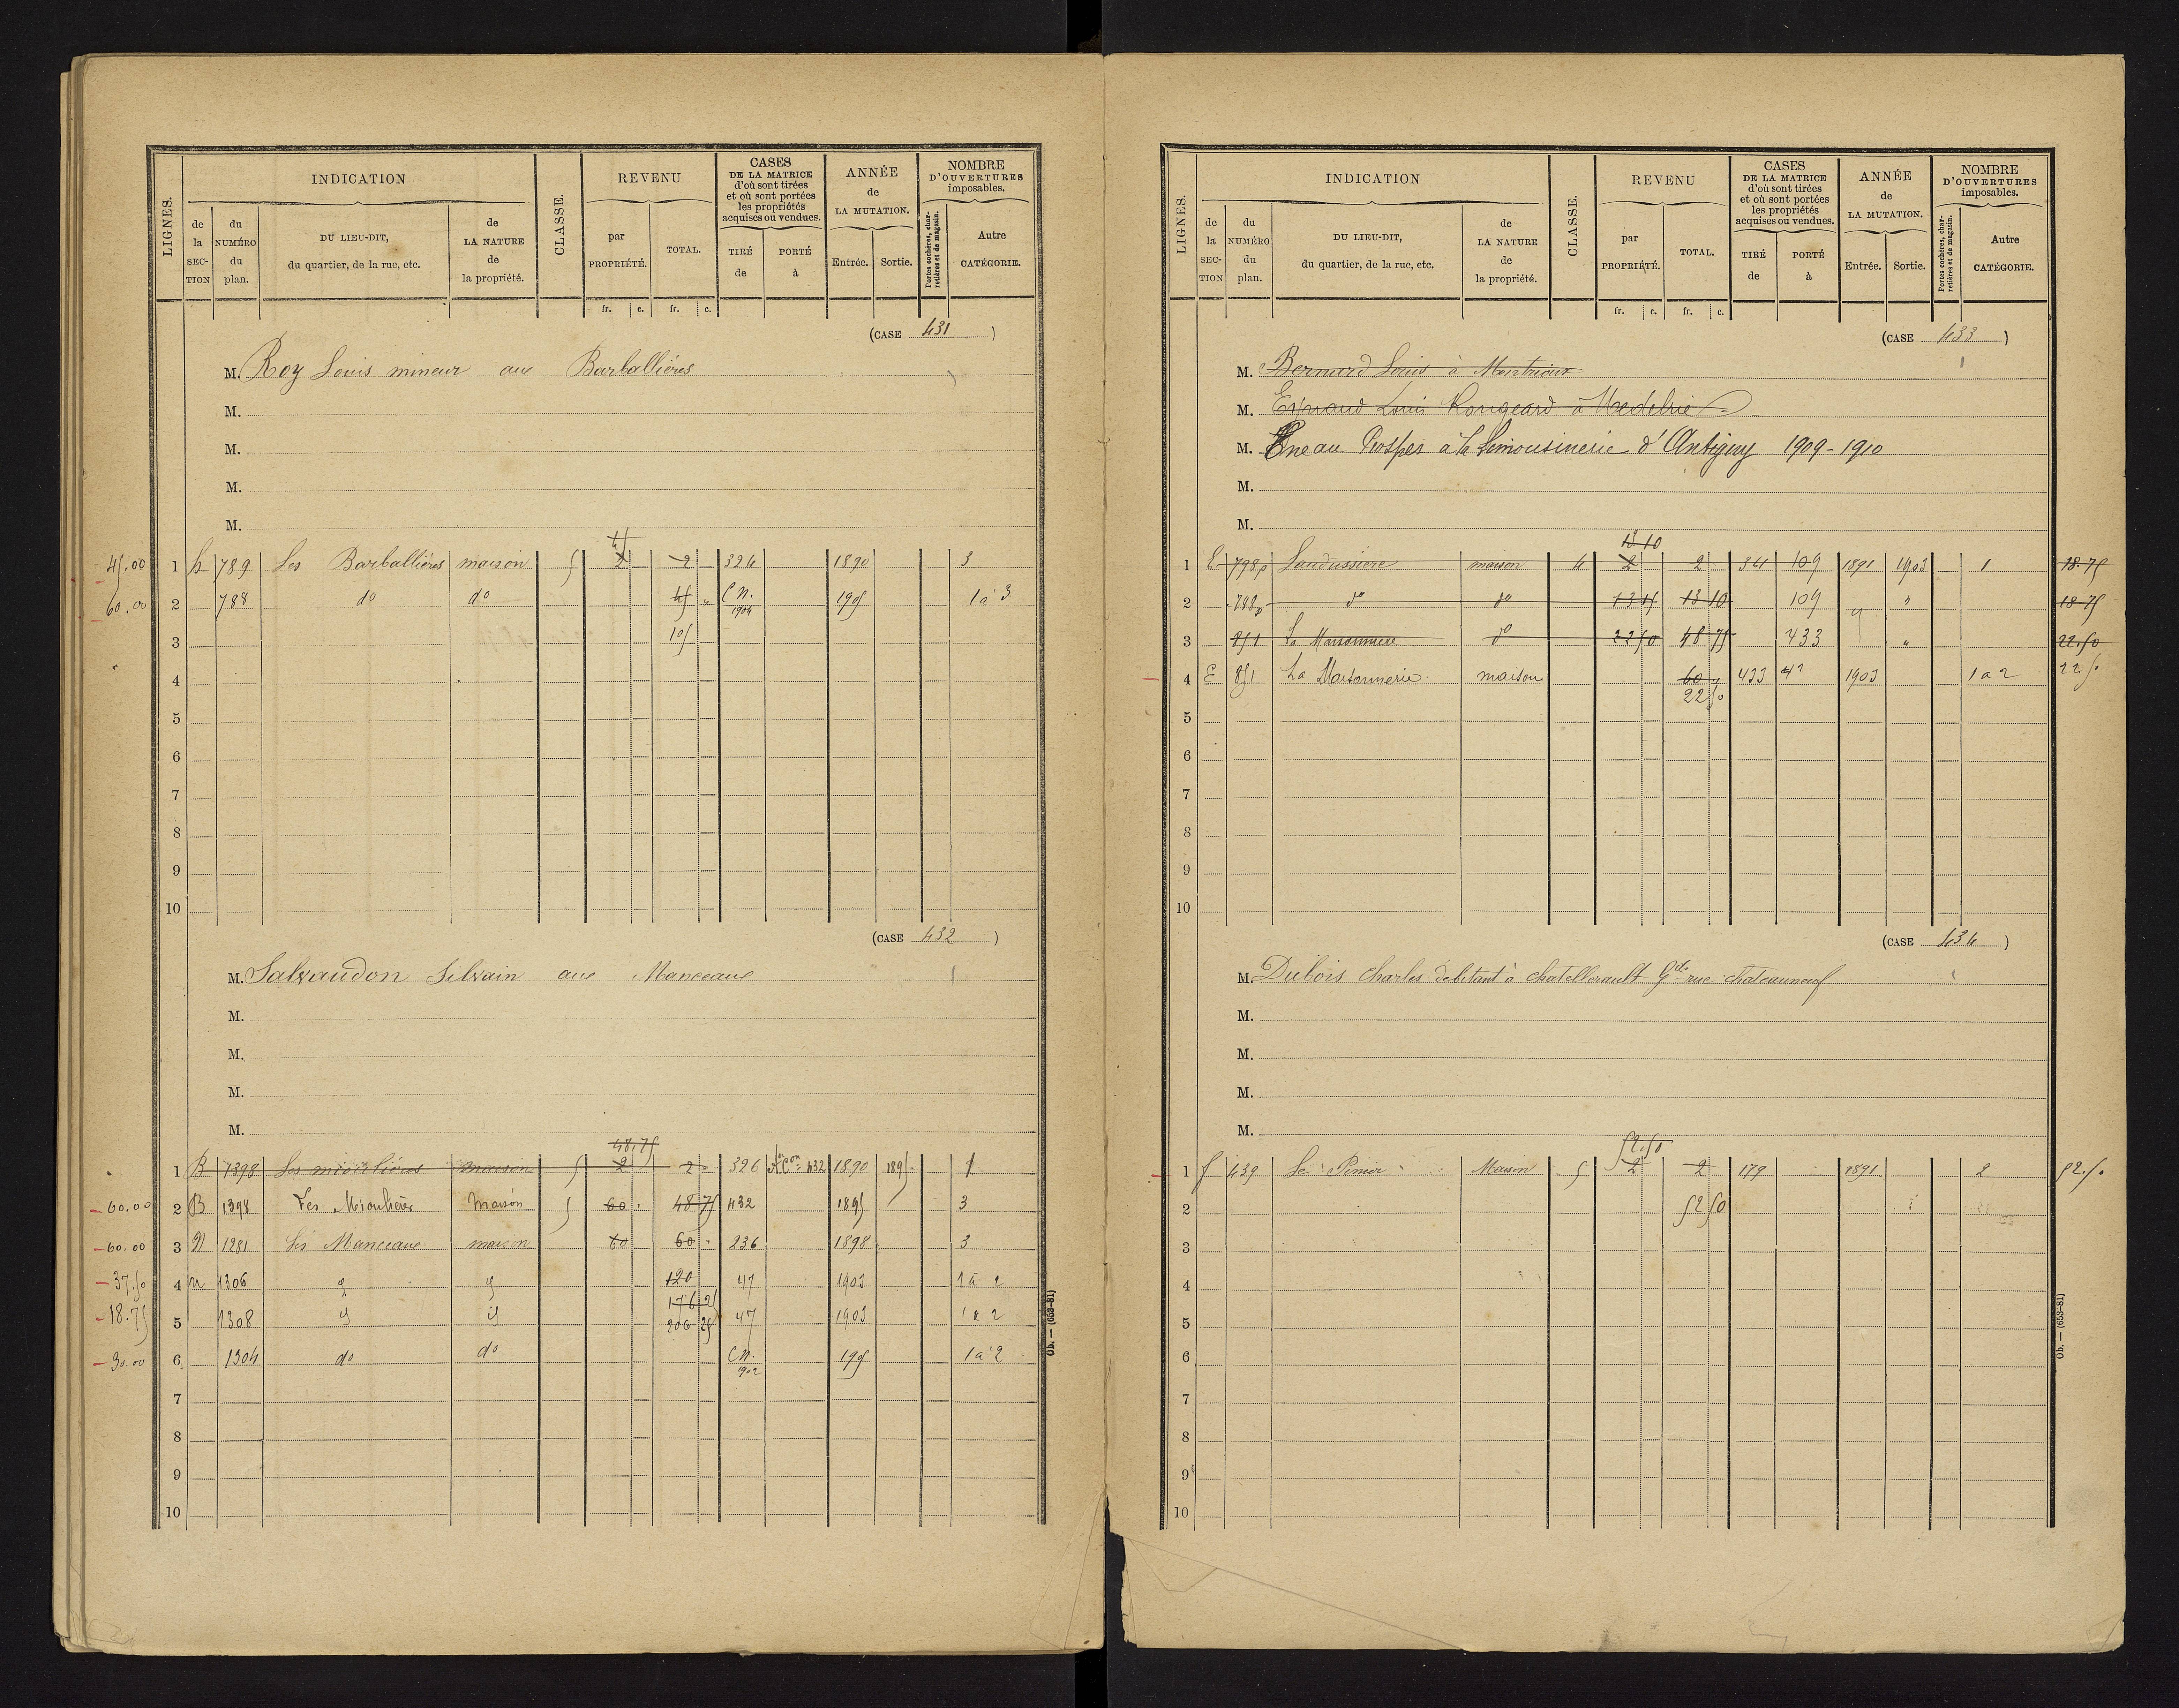 LIGNES. INDICATION CLASSE. REVENU CASES DE LA MATRICE d'où sont tirées et où sont portées les propriétés acquises ou vendues. ANNÉE de LA MUTATION. NOMBRE D'OUVERTURES imposables.
de la SECTION du NUMÉRO du plan. DU LIEU-DIT, du quartier, de la rue, etc. de LA NATURE de la propriété. par PROPRIÉTÉ. TOTAL. TIRÉ de PORTÉ à Entrée. Sortie. Portes cochères, charretières et de magasin. Autre CATÉGORIE.
fr. c. fr. c.
(CASE 431)
M. Roy Louis mineur aux Barballières
M.
M.
M.
M.
45
45.00 1 h 789 Les Barballières maison 5 2 2 324 1890 3
60.00 2 788 do do 45 " C.N. 1904 1905 1 à 3
3 105
4
5
6
7
8
9
10
(CASE 432)
M. Salvaudon Silvain aux Manceaux
M.
M.
M.
M.
48.75
1 B 1398 maison 5 2 2 326 432 1890 1895 1
60.00 2 B 1398 Les Maison 5 60 48 75 432 1895 3
60.00 3 N 1281 Les Manceaux maison 60 60 236 1898 3
37.50 4 n 1306 120 47 1903 1 à 2
18.75 5 1308 176 25 47 1903 1 à 2
206 25
30.00 6 1304 do do C.N. 1902 1905 1 à 2
7
8
9
10
Ob. — (653-81)
LIGNES. INDICATION CLASSE. REVENU CASES DE LA MATRICE d'où sont tirées et où sont portées les propriétés acquises ou vendues. ANNÉE de LA MUTATION. NOMBRE D'OUVERTURES imposables.
de la SECTION du NUMÉRO du plan. DU LIEU-DIT, du quartier, de la rue, etc. de LA NATURE de la propriété. par PROPRIÉTÉ. TOTAL. TIRÉ de PORTÉ à Entrée. Sortie. Portes cochères, charretières et de magasin. Autre CATÉGORIE.
fr. c. fr. c.
(CASE 433)
M. Bernard Louis à
M. Louis Rougeard à
M. Prosper à la Limousinerie d'Antigny 1909-1910
M.
M.
13 10
1 E 798p Laudussière maison 4 2 2 361 109 1891 1903 1 18.75
2 788p do do 13 15 13 10 109 " 18.75
3 851 La do 22 50 48 75 433 " 22.50
4 E 851 La maison 60 433 42 1903 1 à 2 22.50
22 50
5
6
7
8
9
10
(CASE 434)
M. Dubois Charles debitant à chatellerault Gde rue chateauneuf
M.
M.
M.
M.
52.50
1 f 439 Le Maison 5 2 2 179 1891 2 52.50
2 52 50
3
4
5
6
7
8
9
10
Ob. — (653-81)